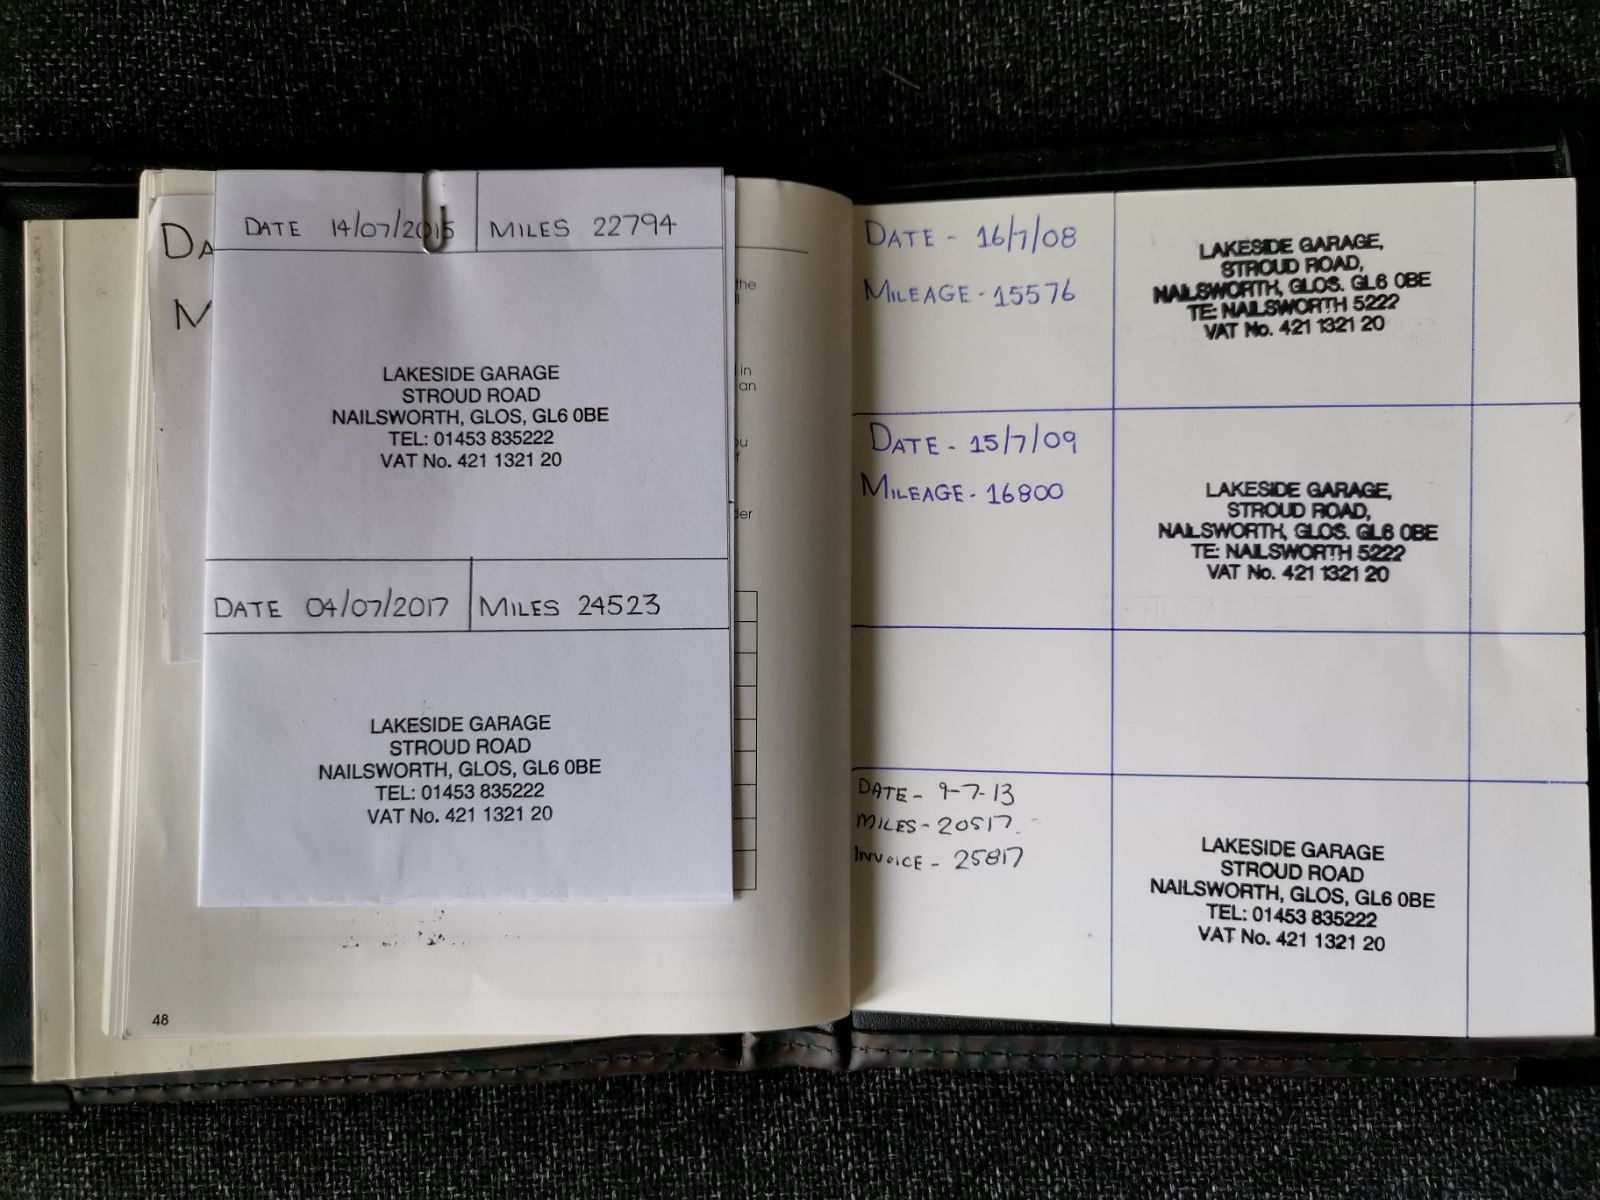 DA
M
DATE 14/07/2015 MILES 22794
LAKESIDE GARAGE
STROUD ROAD
NAILSWORTH, GLOS, GL6 0BE
TEL: 01453 835222
VAT No. 421 1321 20
DATE 04/07/2017 MILES 24523
LAKESIDE GARAGE
STROUD ROAD
NAILSWORTH, GLOS, GL6 0BE
TEL: 01453 835222
VAT No. 421 1321 20
the
in
an
48
DATE - 16/7/08
MILEAGE - 15576
LAKESIDE GARAGE,
STROUD ROAD,
NAILSWORTH, GLOS. GL6 0BE
TE: NAILSWORTH 5222
VAT No. 421 1321 20
DATE - 15/7/09
MILEAGE - 16800
LAKESIDE GARAGE,
STROUD ROAD,
NAILSWORTH, GLOS. GL6 0BE
TE: NAILSWORTH 5222
VAT No. 421 1321 20
DATE - 9-7-13
MILES - 20517
INVOICE - 25817
LAKESIDE GARAGE
STROUD ROAD
NAILSWORTH, GLOS, GL6 0BE
TEL: 01453 835222
VAT No. 421 1321 20